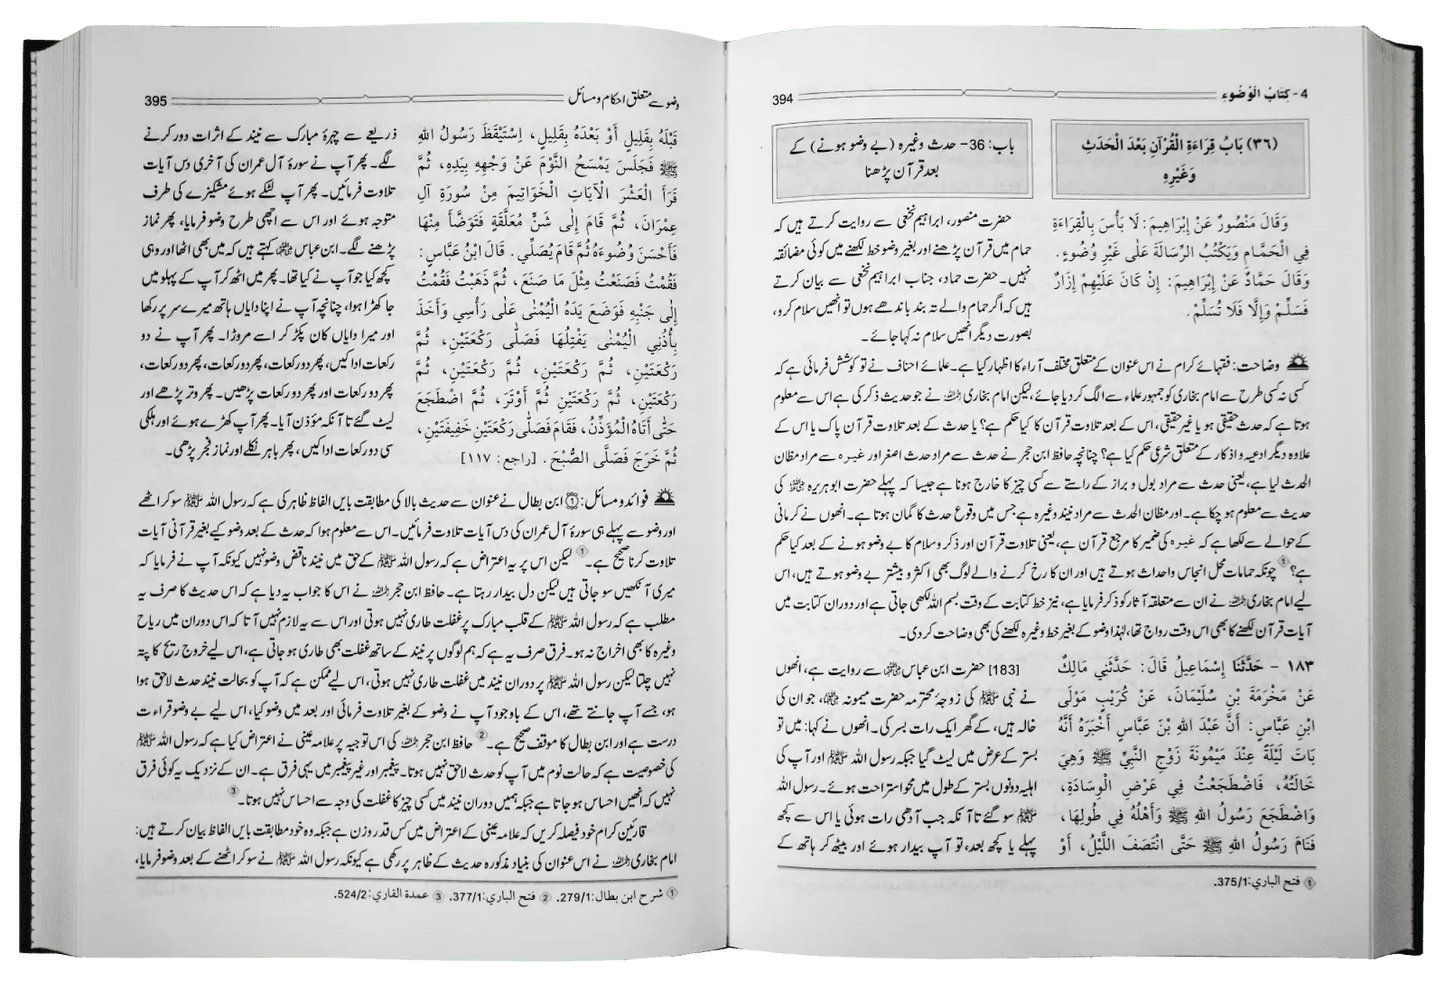 4- كِتَابُ الْوُضُوءِ
394
(٣٦) بَابُ قِرَاءَةِ الْقُرْآنِ بَعْدَ الْحَدَثِ
وَغَيْرِهِ
وَقَالَ مَنْصُورٌ عَنْ إِبْرَاهِيمَ: لَا بَأْسَ بِالْقِرَاءَةِ
فِي الْحَمَّامِ وَيَكْتُبُ الرِّسَالَةَ عَلَى غَيْرِ وُضُوءٍ.
وَقَالَ حَمَّادٌ عَنْ إِبْرَاهِيمَ: إِنْ كَانَ عَلَيْهِمْ إِزَارٌ
فَسَلِّمْ وَإِلَّا فَلَا تُسَلِّمْ.
باب: 36- حدث وغیرہ (بے وضو ہونے) کے
بعد قرآن پڑھنا
حضرت منصور، ابراہیم نخعی سے روایت کرتے ہیں کہ
حمام میں قرآن پڑھنے اور بغیر وضو خط لکھنے میں کوئی مضائقہ
نہیں۔ حضرت حماد، جناب ابراہیم نخعی سے بیان کرتے
ہیں کہ اگر حمام والے تہ بند باندھے ہوں تو انھیں سلام کرو،
بصورت دیگر انھیں سلام نہ کہا جائے۔
وضاحت: فقہائے کرام نے اس عنوان کے متعلق مختلف آراء کا اظہار کیا ہے۔ علمائے احناف نے تو کوشش فرمائی ہے کہ
کسی نہ کسی طرح سے امام بخاری کو جمہور علماء سے الگ کر دیا جائے، لیکن امام بخاری رحمہ اللہ نے جو حدیث ذکر کی ہے اس سے معلوم
ہوتا ہے کہ حدث حقیقی ہو یا غیر حقیقی، اس کے بعد تلاوت قرآن کا کیا حکم ہے؟ یا حدث کے بعد تلاوت قرآن پاک یا اس کے
علاوہ دیگر ادعیہ و اذکار کے متعلق شرعی حکم کیا ہے؟ چنانچہ حافظ ابن حجر نے حدث سے مراد حدث اصغر اور غیرہ سے مراد مظان
الحدث لیا ہے، یعنی حدث سے مراد بول و براز کے راستے سے کسی چیز کا خارج ہونا ہے جیسا کہ پہلے حضرت ابو ہریرہ رضی اللہ عنہ کی
حدیث سے معلوم ہو چکا ہے۔ اور مظان الحدث سے مراد نیند وغیرہ ہے جس میں وقوع حدث کا گمان ہوتا ہے۔ انھوں نے کرمانی
کے حوالے سے لکھا ہے کہ غیرہ کی ضمیر کا مرجع قرآن ہے، یعنی تلاوت قرآن اور ذکر و سلام کا بے وضو ہونے کے بعد کیا حکم
ہے؟ ① چونکہ حمامات محل انجاس و احداث ہوتے ہیں اور ان کا رخ کرنے والے لوگ بھی اکثر و بیشتر بے وضو ہوتے ہیں، اس
لیے امام بخاری رحمہ اللہ نے ان سے متعلقہ آثار کو ذکر فرمایا ہے، نیز خط کتابت کے وقت بسم اللہ لکھی جاتی ہے اور دوران کتابت میں
آیات قرآن لکھنے کا بھی اس وقت رواج تھا، لہٰذا وضو کے بغیر خط وغیرہ لکھنے کی بھی وضاحت کر دی۔
١٨٣ - حَدَّثَنَا إِسْمَاعِيلُ قَالَ: حَدَّثَنِي مَالِكٌ
عَنْ مَخْرَمَةَ بْنِ سُلَيْمَانَ، عَنْ كُرَيْبٍ مَوْلَى
ابْنِ عَبَّاسٍ: أَنَّ عَبْدَ اللهِ بْنَ عَبَّاسٍ أَخْبَرَهُ أَنَّهُ
بَاتَ لَيْلَةً عِنْدَ مَيْمُونَةَ زَوْجِ النَّبِيِّ ﷺ وَهِيَ
خَالَتُهُ، فَاضْطَجَعْتُ فِي عَرْضِ الْوِسَادَةِ،
وَاضْطَجَعَ رَسُولُ اللهِ ﷺ وَأَهْلُهُ فِي طُولِهَا،
فَنَامَ رَسُولُ اللهِ ﷺ حَتَّى انْتَصَفَ اللَّيْلُ، أَوْ
[183] حضرت ابن عباس رضی اللہ عنہما سے روایت ہے، انھوں
نے نبی ﷺ کی زوجۂ محترمہ حضرت میمونہ رضی اللہ عنہا، جو ان کی
خالہ ہیں، کے گھر ایک رات بسر کی۔ انھوں نے کہا: میں تو
بستر کے عرض میں لیٹ گیا جبکہ رسول اللہ ﷺ اور آپ کی
اہلیہ دونوں بستر کے طول میں محو استراحت ہوئے۔ رسول اللہ
ﷺ سو گئے تا آنکہ جب آدھی رات ہوئی یا اس سے کچھ
پہلے یا کچھ بعد، تو آپ بیدار ہوئے اور بیٹھ کر ہاتھ کے
① فتح الباري: 375/1.
وضو سے متعلق احکام و مسائل
395
قَبْلَهُ بِقَلِيلٍ أَوْ بَعْدَهُ بِقَلِيلٍ، اِسْتَيْقَظَ رَسُولُ اللهِ
ﷺ فَجَلَسَ يَمْسَحُ النَّوْمَ عَنْ وَجْهِهِ بِيَدِهِ، ثُمَّ
قَرَأَ الْعَشْرَ الْآيَاتِ الْخَوَاتِيمَ مِنْ سُورَةِ آلِ
عِمْرَانَ، ثُمَّ قَامَ إِلَى شَنٍّ مُعَلَّقَةٍ فَتَوَضَّأَ مِنْهَا
فَأَحْسَنَ وُضُوءَهُ ثُمَّ قَامَ يُصَلِّي. قَالَ ابْنُ عَبَّاسٍ:
فَقُمْتُ فَصَنَعْتُ مِثْلَ مَا صَنَعَ، ثُمَّ ذَهَبْتُ فَقُمْتُ
إِلَى جَنْبِهِ فَوَضَعَ يَدَهُ الْيُمْنَى عَلَى رَأْسِي وَأَخَذَ
بِأُذُنِي الْيُمْنَى يَفْتِلُهَا فَصَلَّى رَكْعَتَيْنِ، ثُمَّ
رَكْعَتَيْنِ، ثُمَّ رَكْعَتَيْنِ، ثُمَّ رَكْعَتَيْنِ، ثُمَّ
رَكْعَتَيْنِ، ثُمَّ رَكْعَتَيْنِ ثُمَّ أَوْتَرَ، ثُمَّ اضْطَجَعَ
حَتَّى أَتَاهُ الْمُؤَذِّنُ، فَقَامَ فَصَلَّى رَكْعَتَيْنِ خَفِيفَتَيْنِ،
ثُمَّ خَرَجَ فَصَلَّى الصُّبْحَ. [راجع: ١١٧]
ذریعے سے چہرۂ مبارک سے نیند کے اثرات دور کرنے
لگے۔ پھر آپ نے سورۂ آل عمران کی آخری دس آیات
تلاوت فرمائیں۔ پھر آپ لٹکے ہوئے مشکیزے کی طرف
متوجہ ہوئے اور اس سے اچھی طرح وضو فرمایا، پھر نماز
پڑھنے لگے۔ ابن عباس رضی اللہ عنہما کہتے ہیں کہ میں بھی اٹھا اور وہی
کچھ کیا جو آپ نے کیا تھا۔ پھر میں اٹھ کر آپ کے پہلو میں
جا کھڑا ہوا، چنانچہ آپ نے اپنا دایاں ہاتھ میرے سر پر رکھا
اور میرا دایاں کان پکڑ کر اسے مروڑا۔ پھر آپ نے دو
رکعات ادا کیں، پھر دو رکعات، پھر دو رکعات، پھر دو رکعات،
پھر دو رکعات اور پھر دو رکعات پڑھیں۔ پھر وتر پڑھے اور
لیٹ گئے تا آنکہ مؤذن آیا۔ پھر آپ کھڑے ہوئے اور ہلکی
سی دو رکعات ادا کیں، پھر باہر نکلے اور نماز فجر پڑھی۔
فوائد و مسائل: ① ابن بطال نے عنوان سے حدیث بالا کی مطابقت بایں الفاظ ظاہر کی ہے کہ رسول اللہ ﷺ سو کر اٹھے
اور وضو سے پہلے ہی سورۂ آل عمران کی دس آیات تلاوت فرمائیں۔ اس سے معلوم ہوا کہ حدث کے بعد وضو کیے بغیر قرآنی آیات
تلاوت کرنا صحیح ہے۔ ① لیکن اس پر یہ اعتراض ہے کہ رسول اللہ ﷺ کے حق میں نیند ناقض وضو نہیں کیونکہ آپ نے فرمایا کہ
میری آنکھیں سو جاتی ہیں لیکن دل بیدار رہتا ہے۔ حافظ ابن حجر رحمہ اللہ نے اس کا جواب یہ دیا ہے کہ اس حدیث کا صرف یہ
مطلب ہے کہ رسول اللہ ﷺ کے قلب مبارک پر غفلت طاری نہیں ہوتی اور اس سے یہ لازم نہیں آتا کہ اس دوران میں ریاح
وغیرہ کا بھی اخراج نہ ہو۔ فرق صرف یہ ہے کہ ہم لوگوں پر نیند کے ساتھ غفلت بھی طاری ہو جاتی ہے، اس لیے خروج ریح کا پتہ
نہیں چلتا لیکن رسول اللہ ﷺ پر دوران نیند میں غفلت طاری نہیں ہوتی، اس لیے ممکن ہے کہ آپ کو بحالت نیند حدث لاحق ہوا
ہو، جسے آپ جانتے تھے، اس کے باوجود آپ نے وضو کے بغیر تلاوت فرمائی اور بعد میں وضو کیا، اس لیے بے وضو قراءت
درست ہے اور ابن بطال کا موقف صحیح ہے۔ ② حافظ ابن حجر رحمہ اللہ کی اس توجیہ پر علامہ عینی نے اعتراض کیا ہے کہ رسول اللہ ﷺ
کی خصوصیت ہے کہ حالت نوم میں آپ کو حدث لاحق نہیں ہوتا۔ پیغمبر اور غیر پیغمبر میں یہی فرق ہے۔ ان کے نزدیک یہ کوئی فرق
نہیں کہ انھیں احساس ہو جاتا ہے جبکہ ہمیں دوران نیند میں کسی چیز کا غفلت کی وجہ سے احساس نہیں ہوتا۔ ③
قارئین کرام خود فیصلہ کریں کہ علامہ عینی کے اعتراض میں کس قدر وزن ہے جبکہ وہ خود مطابقت بایں الفاظ بیان کرتے ہیں:
امام بخاری رحمہ اللہ نے اس عنوان کی بنیاد مذکورہ حدیث کے ظاہر پر رکھی ہے کیونکہ رسول اللہ ﷺ نے سو کر اٹھنے کے بعد وضو فرمایا،
① شرح ابن بطال: 279/1. ② فتح الباري: 377/1. ③ عمدة القاري: 524/2.